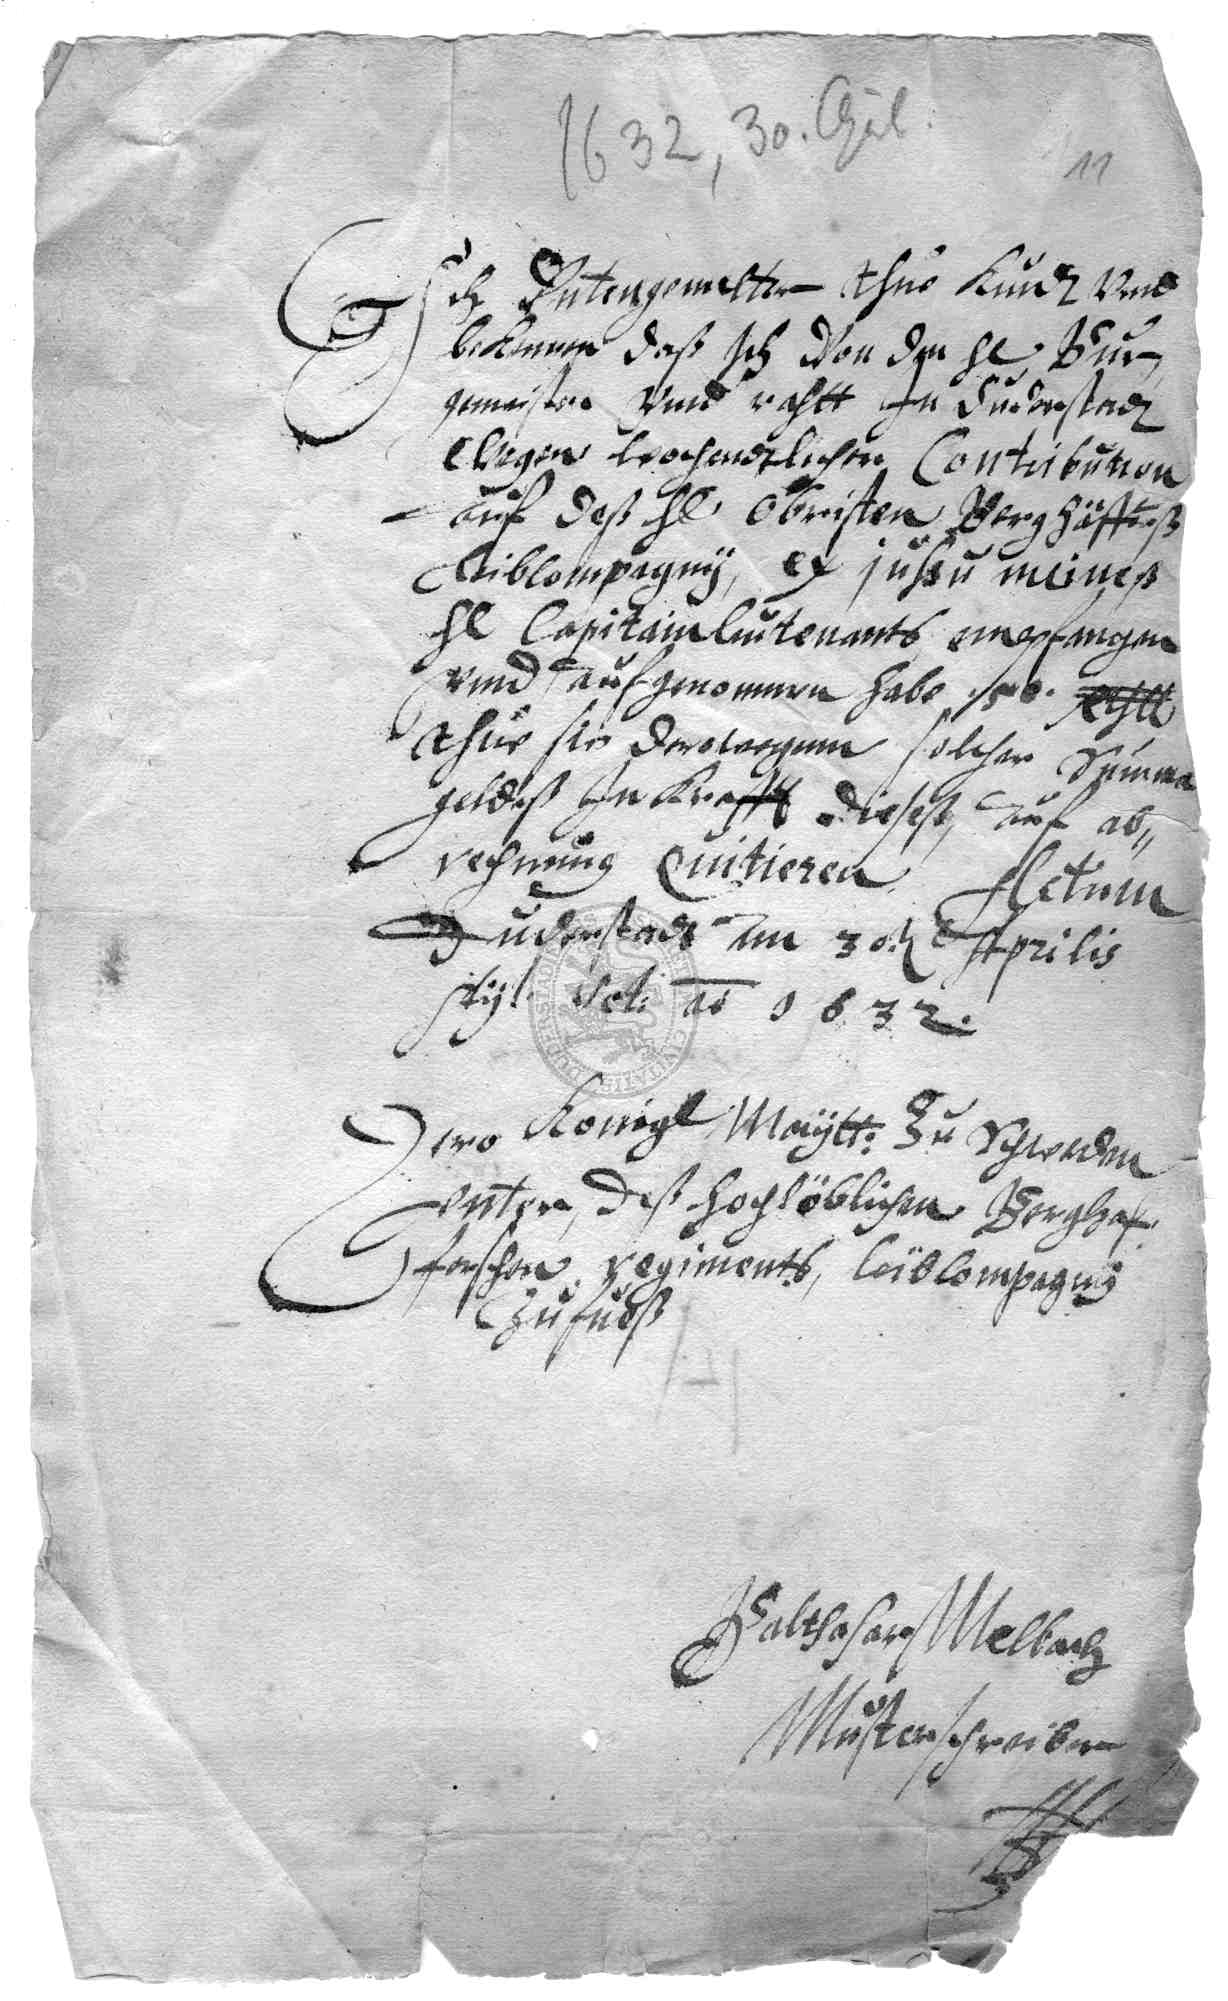 1632, 30. April.
11
Ich Entengemelter thue Kundt vnd
bekenne daß ich von den hl Bur¬
gemeister vnd rahtt In Duderstadt
Wegen wochendtlicher Contribution
auf deß hl Obristen Berghöfferß
Leibcompagnÿ, ex jussu meineß
hl Capitainlieutenants empfangen
vnd aufgenommen habe 50. Rthll
thue sie derowegenn solcher Summa
geldeß In Krafft dieseß, auf ab,,
rechnung Quitieren Actum
Duderstadt Am 30t Aprilis
styl. vet. ao 1632.
Dero Königl Maÿtt: Zu Schweden
vnter, deß hochlöblichen Berghof¬
ferschen regiments, leibcompagnÿ
Zufueß
Balthasar Melbach
Musterschreiber
CIVITATIS